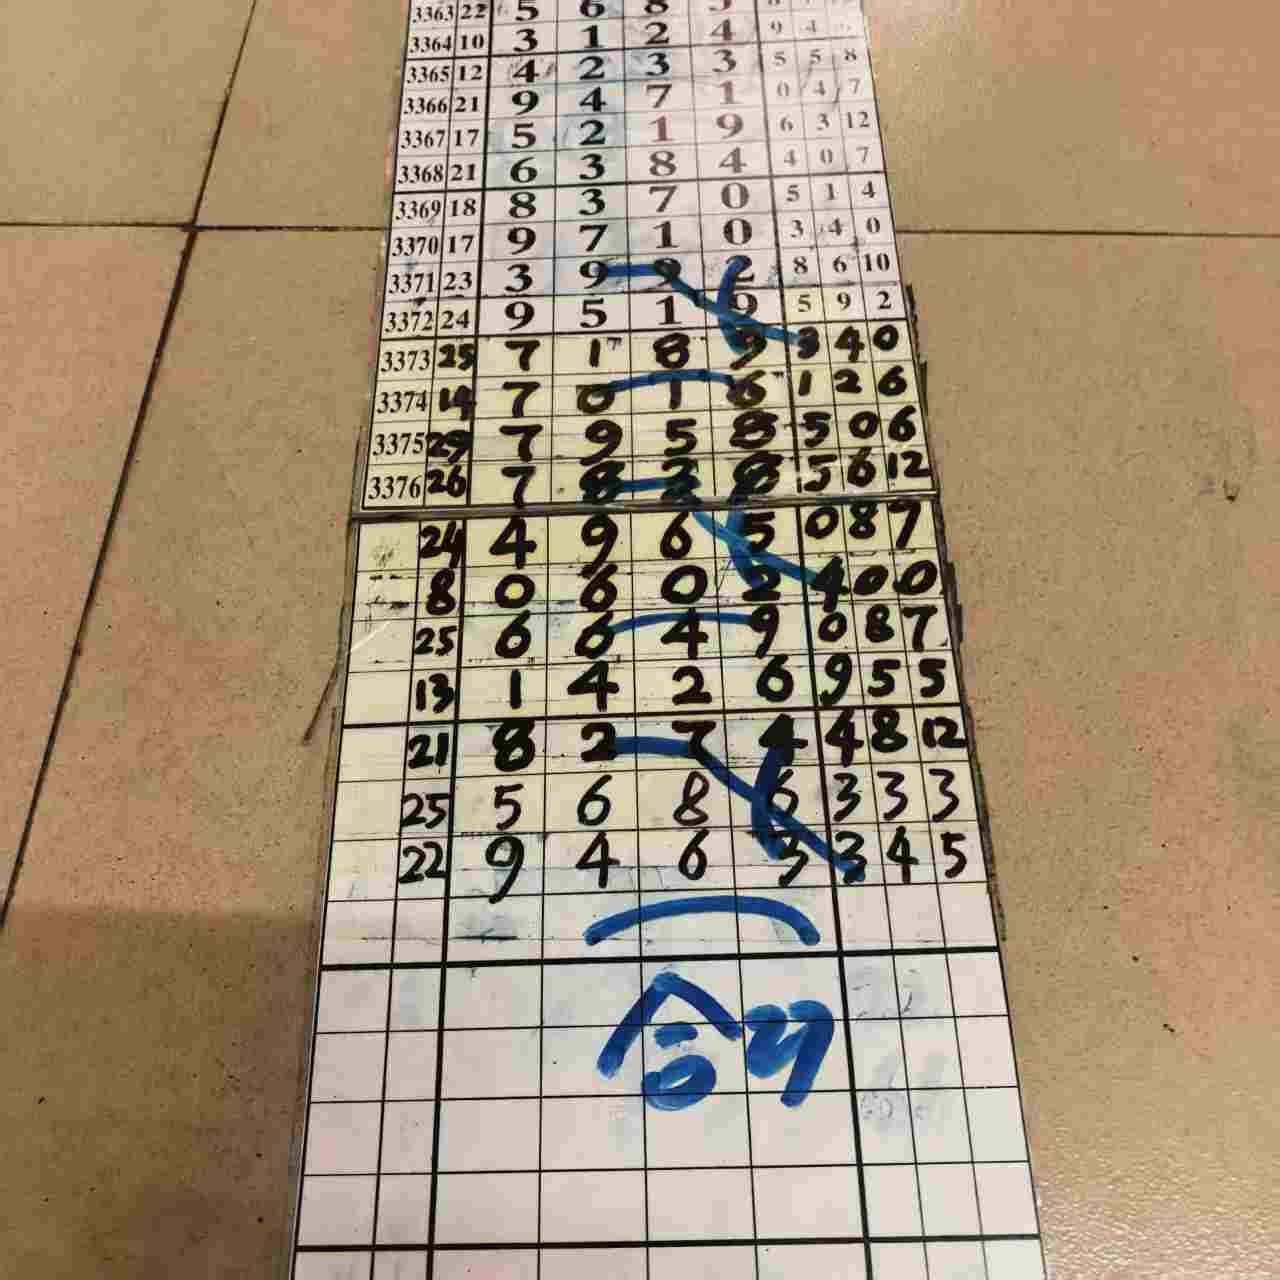 3363 22 5 6 8
3364 10 3 1 2 4 9 4
3365 12 4 2 3 3 5 5 8
3366 21 9 4 7 1 0 4 7
3367 17 5 2 1 9 6 3 12
3368 21 6 3 8 4 4 0 7
3369 18 8 3 7 0 5 1 4
3370 17 9 7 1 0 3 4 0
3371 23 3 9 9 2 8 6 10
3372 24 9 5 1 9 5 9 2
3373 25 7 1 8 9 3 4 0
3374 14 7 0 1 6 1 2 6
3375 29 7 9 5 8 5 0 6
3376 26 7 8 3 8 5 6 12
24 4 9 6 5 0 8 7
8 0 6 0 2 4 0 0
25 6 6 4 9 0 8 7
13 1 4 2 6 9 5 5
21 8 2 7 4 4 8 12
25 5 6 8 6 3 3 3
22 9 4 6 3 3 4 5
合27